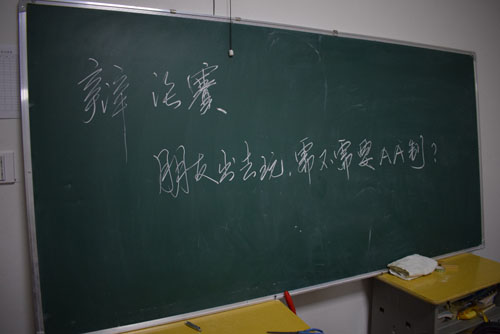 辩论赛
朋友出去玩,需不需要AA制?